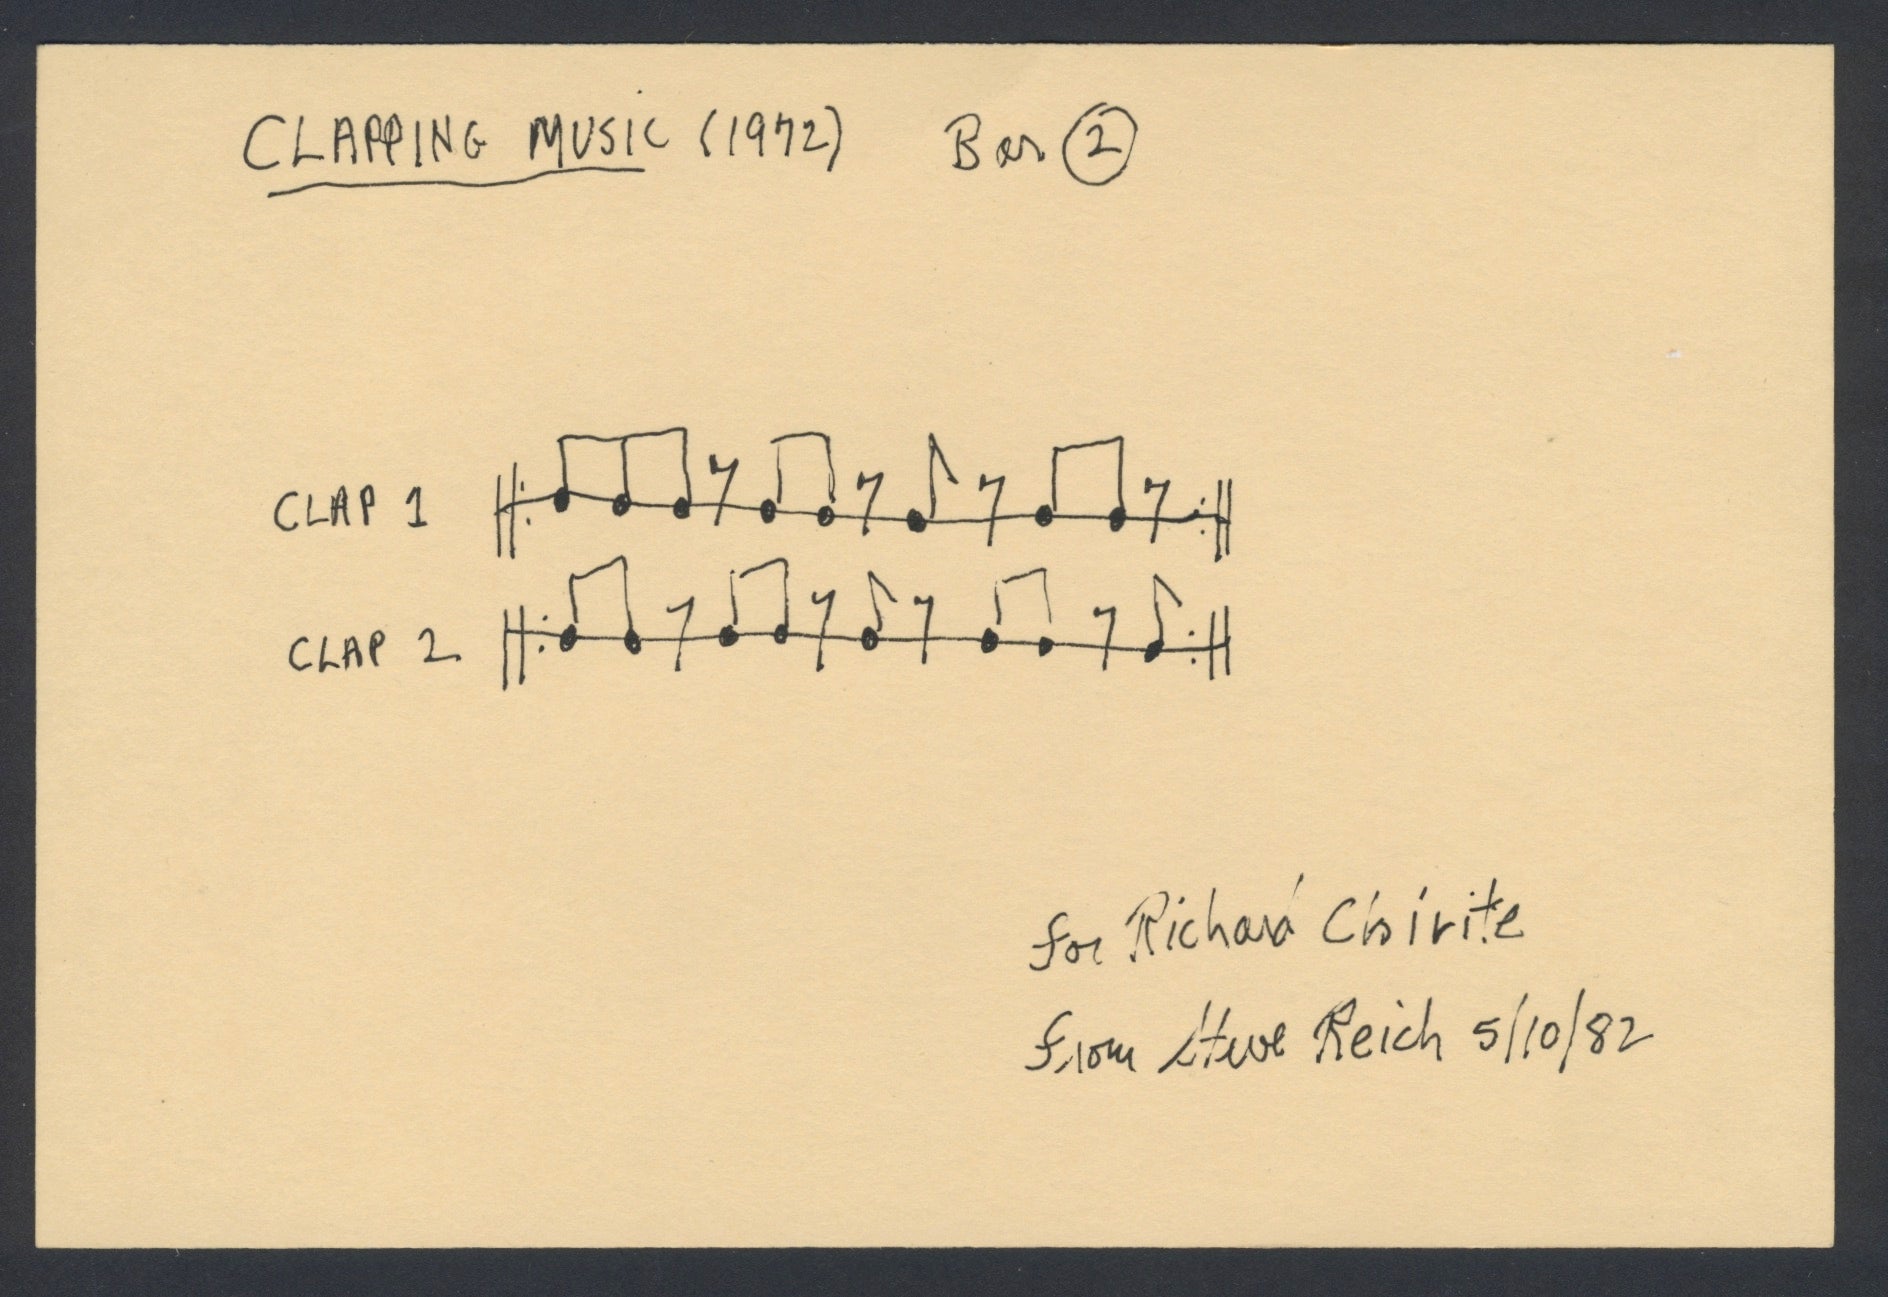 CLAPPING MUSIC (1972) Bar 2
CLAP 1
CLAP 2
for Richard Chirite
from Steve Reich 5/10/82